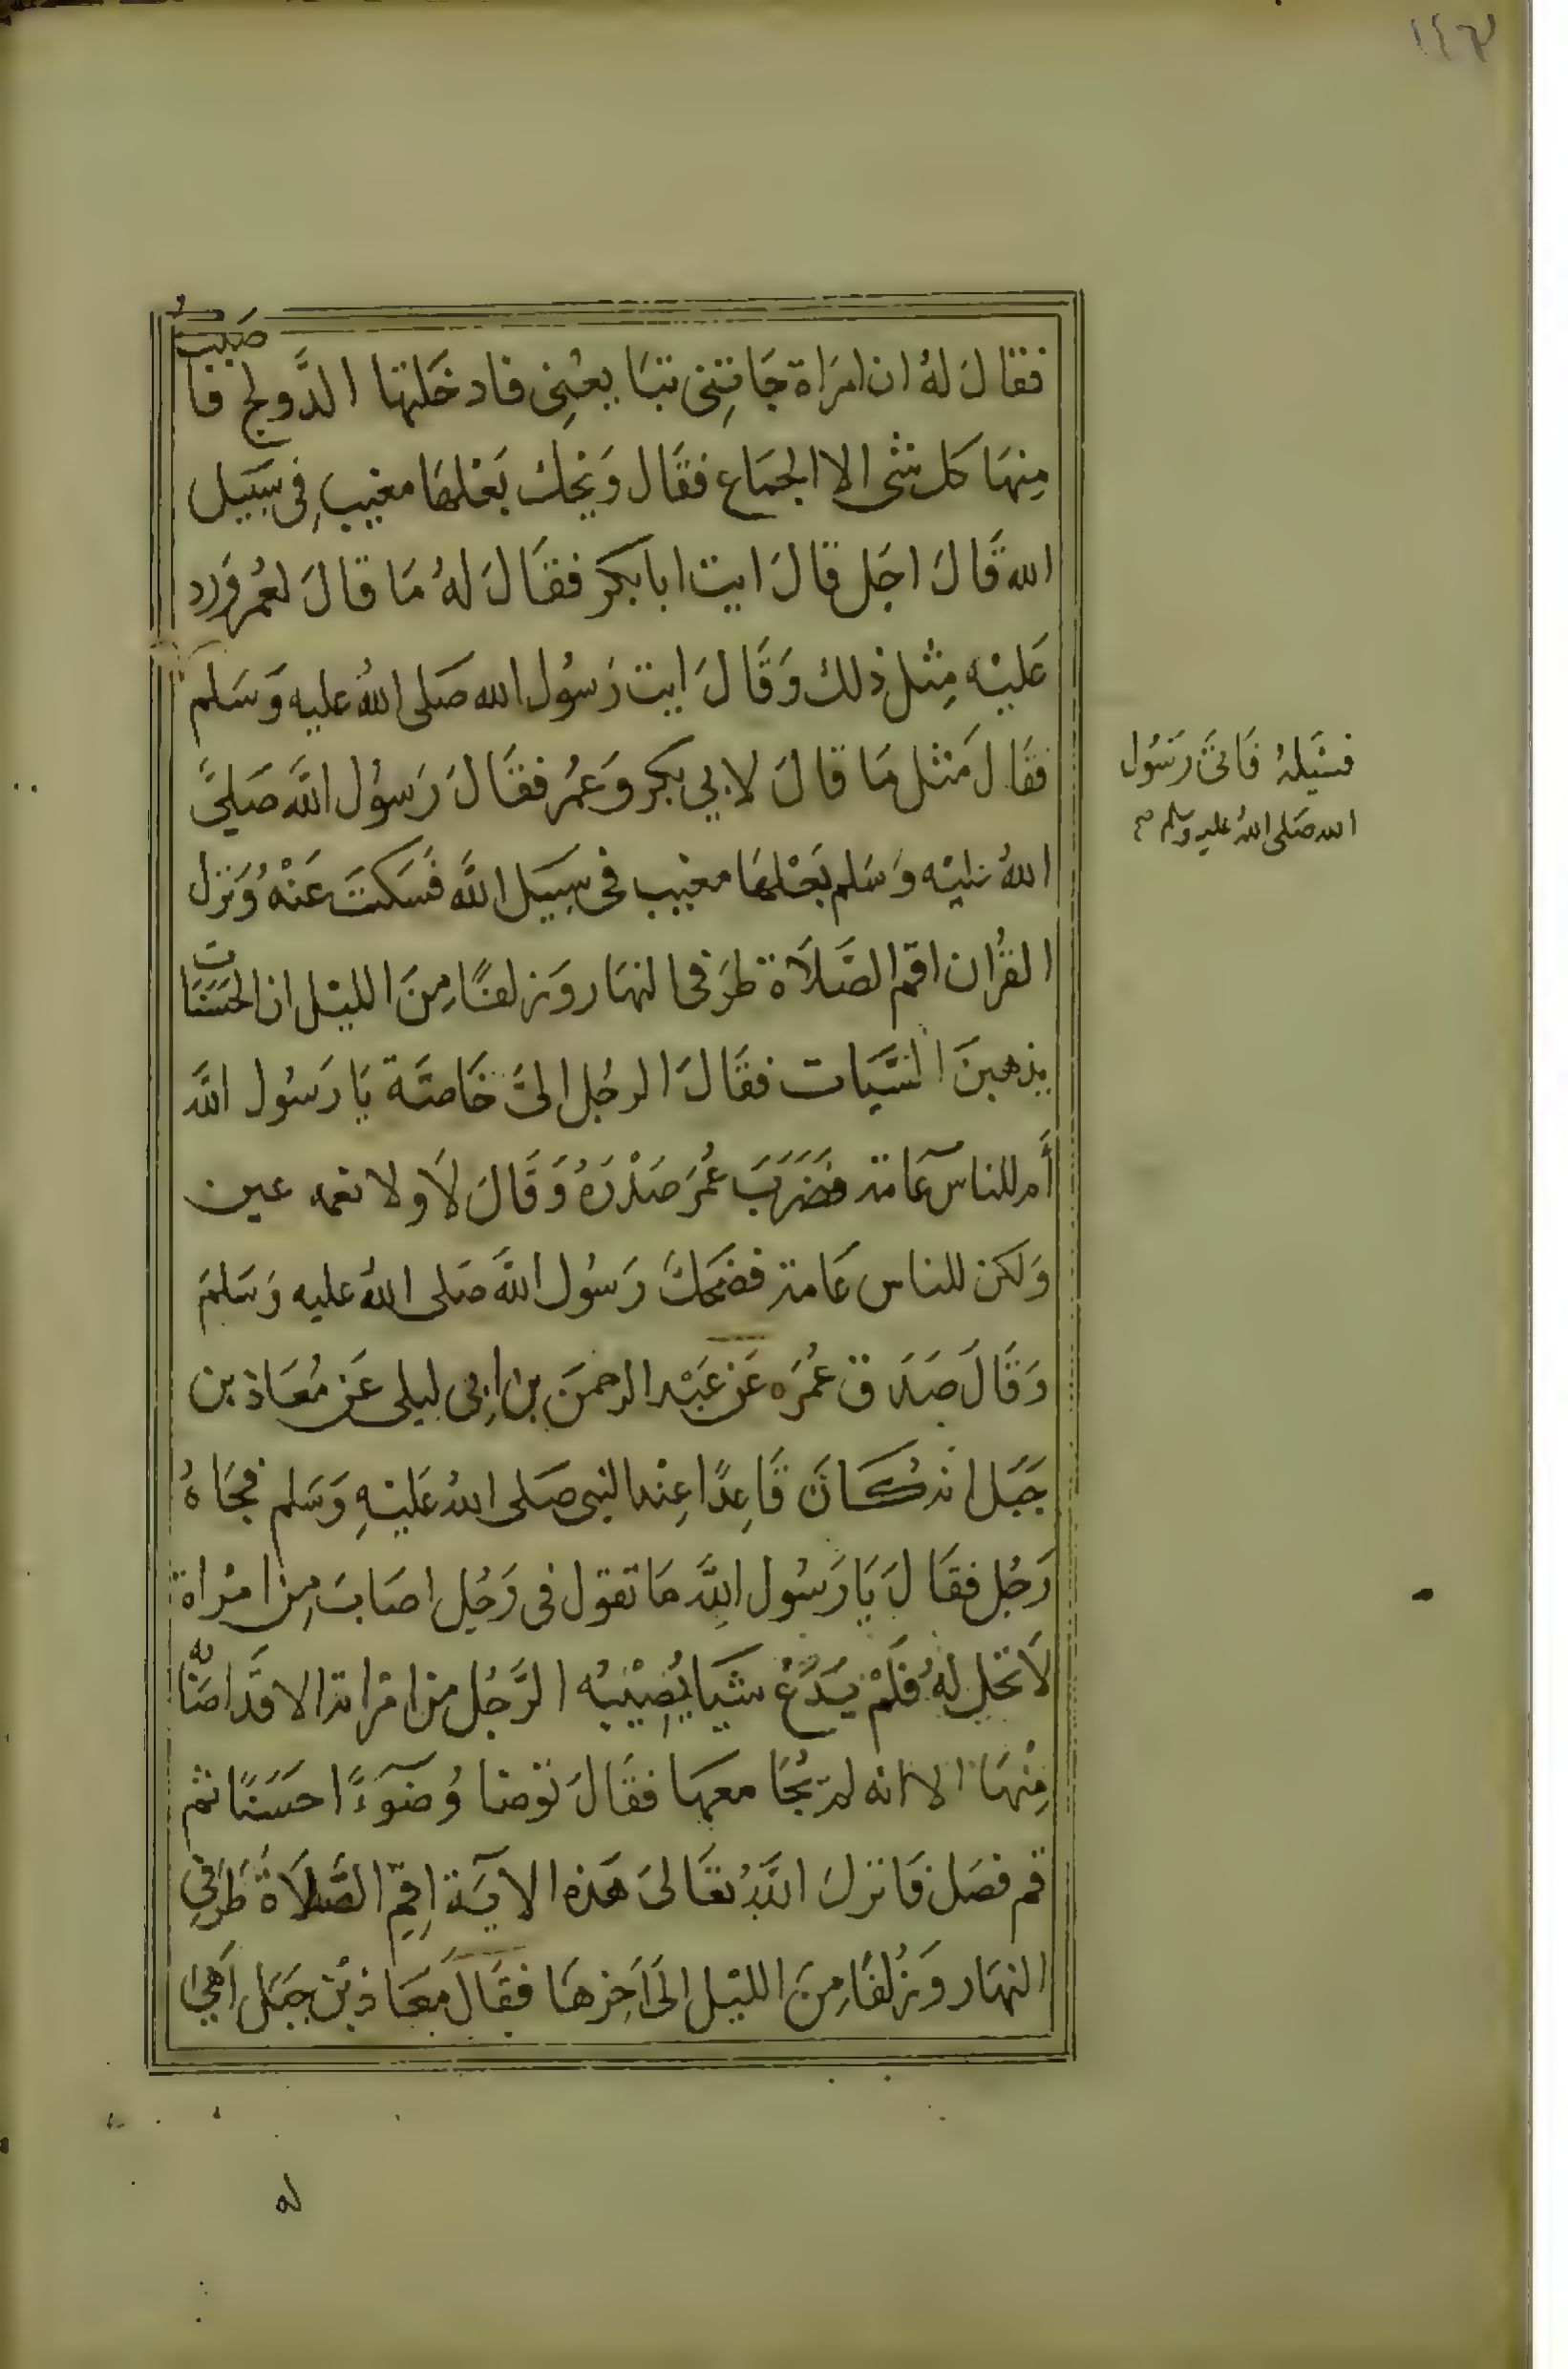 ١٤٦
فقَالَ لهُ ان امرَاة جَاتِنى تبَا يعُنِى فادخَلتها الدَّولج فاصَبت
مِنهَا كل شى الا الجمَاع فقَال وَيحك بَعْلهَا مغيب فِى سَبيل
الله قَالَ اجَل قالَ ايت ابا بكر فقَالَ لهُ مَا قالَ لعُمر وَرد
عَليْه مِثل ذلك وَقَالَ ايت رَسُول الله صَلى اللهُ عليه وَسَلم
فقَالَ مَثل مَا قالَ لابي بكر وَعمُر فقَالَ رَسوُل اللَّه صَلىَّ
اللهُ عليْه وَسَلم بَعْلهَا مغيب فى سَبيل اللَّه فَسَكتَ عَنْهُ وَنزل
القرُان اقم الصَّلاَة طرَفى النهَار وَزلفًا مِنَ الليْل ان الحسَنَات
يذهبنَ السَّيات فقَالَ الرجُل الىَّ خَاصَّة يَا رَسُول اللَّه
أَم للناس عَامة فضَرَبَ عُمَر صَدْرَهُ وَقَالَ لاَ ولا نعمه عين
وَلكن للناس عَامة فضَحكَ رَسُول اللَّه صَلى اللهُ عليه وَسَلمَ
وَقَالَ صَدَق عُمَره عَن عَبْد الرحمنَ بن ابِى ليلى عَن مُعَاذ بن
جَبَل انهُ كَانَ قَاعِدًا عِنْد النبى صَلى اللهُ عَليْهِ وَسَلم فجَاهُ
رَجُل فقَالَ يَا رَسُول اللَّه مَا تقول فى رَجُل اصَابَ مِن امْراة
لاَ تحَل لهُ فَلَمْ يَدَعْ شَيا يُصِيْبُه الرَّجُل من امْراته الا قدَ اصَابه
مِنْهَا الا انه لم يجُامعها فقَالَ توَضا وُضوَءًا حَسَنًا ثم
قم فصَل فَانزلَ اللَّهُ تعَالىَ هَذه الايَة اقِمِ الصَّلاَةَ طرَفيِ
النهَار وَزُلفًا مِنَ الليْل الىَ اَخِرهَا فقَالَ مَعَاذ بْن جَبَل اَهيَ
له
فسَيلهُ فَاتىَ رَسُول
الله صَلى اللهُ عليه وسَلم صح